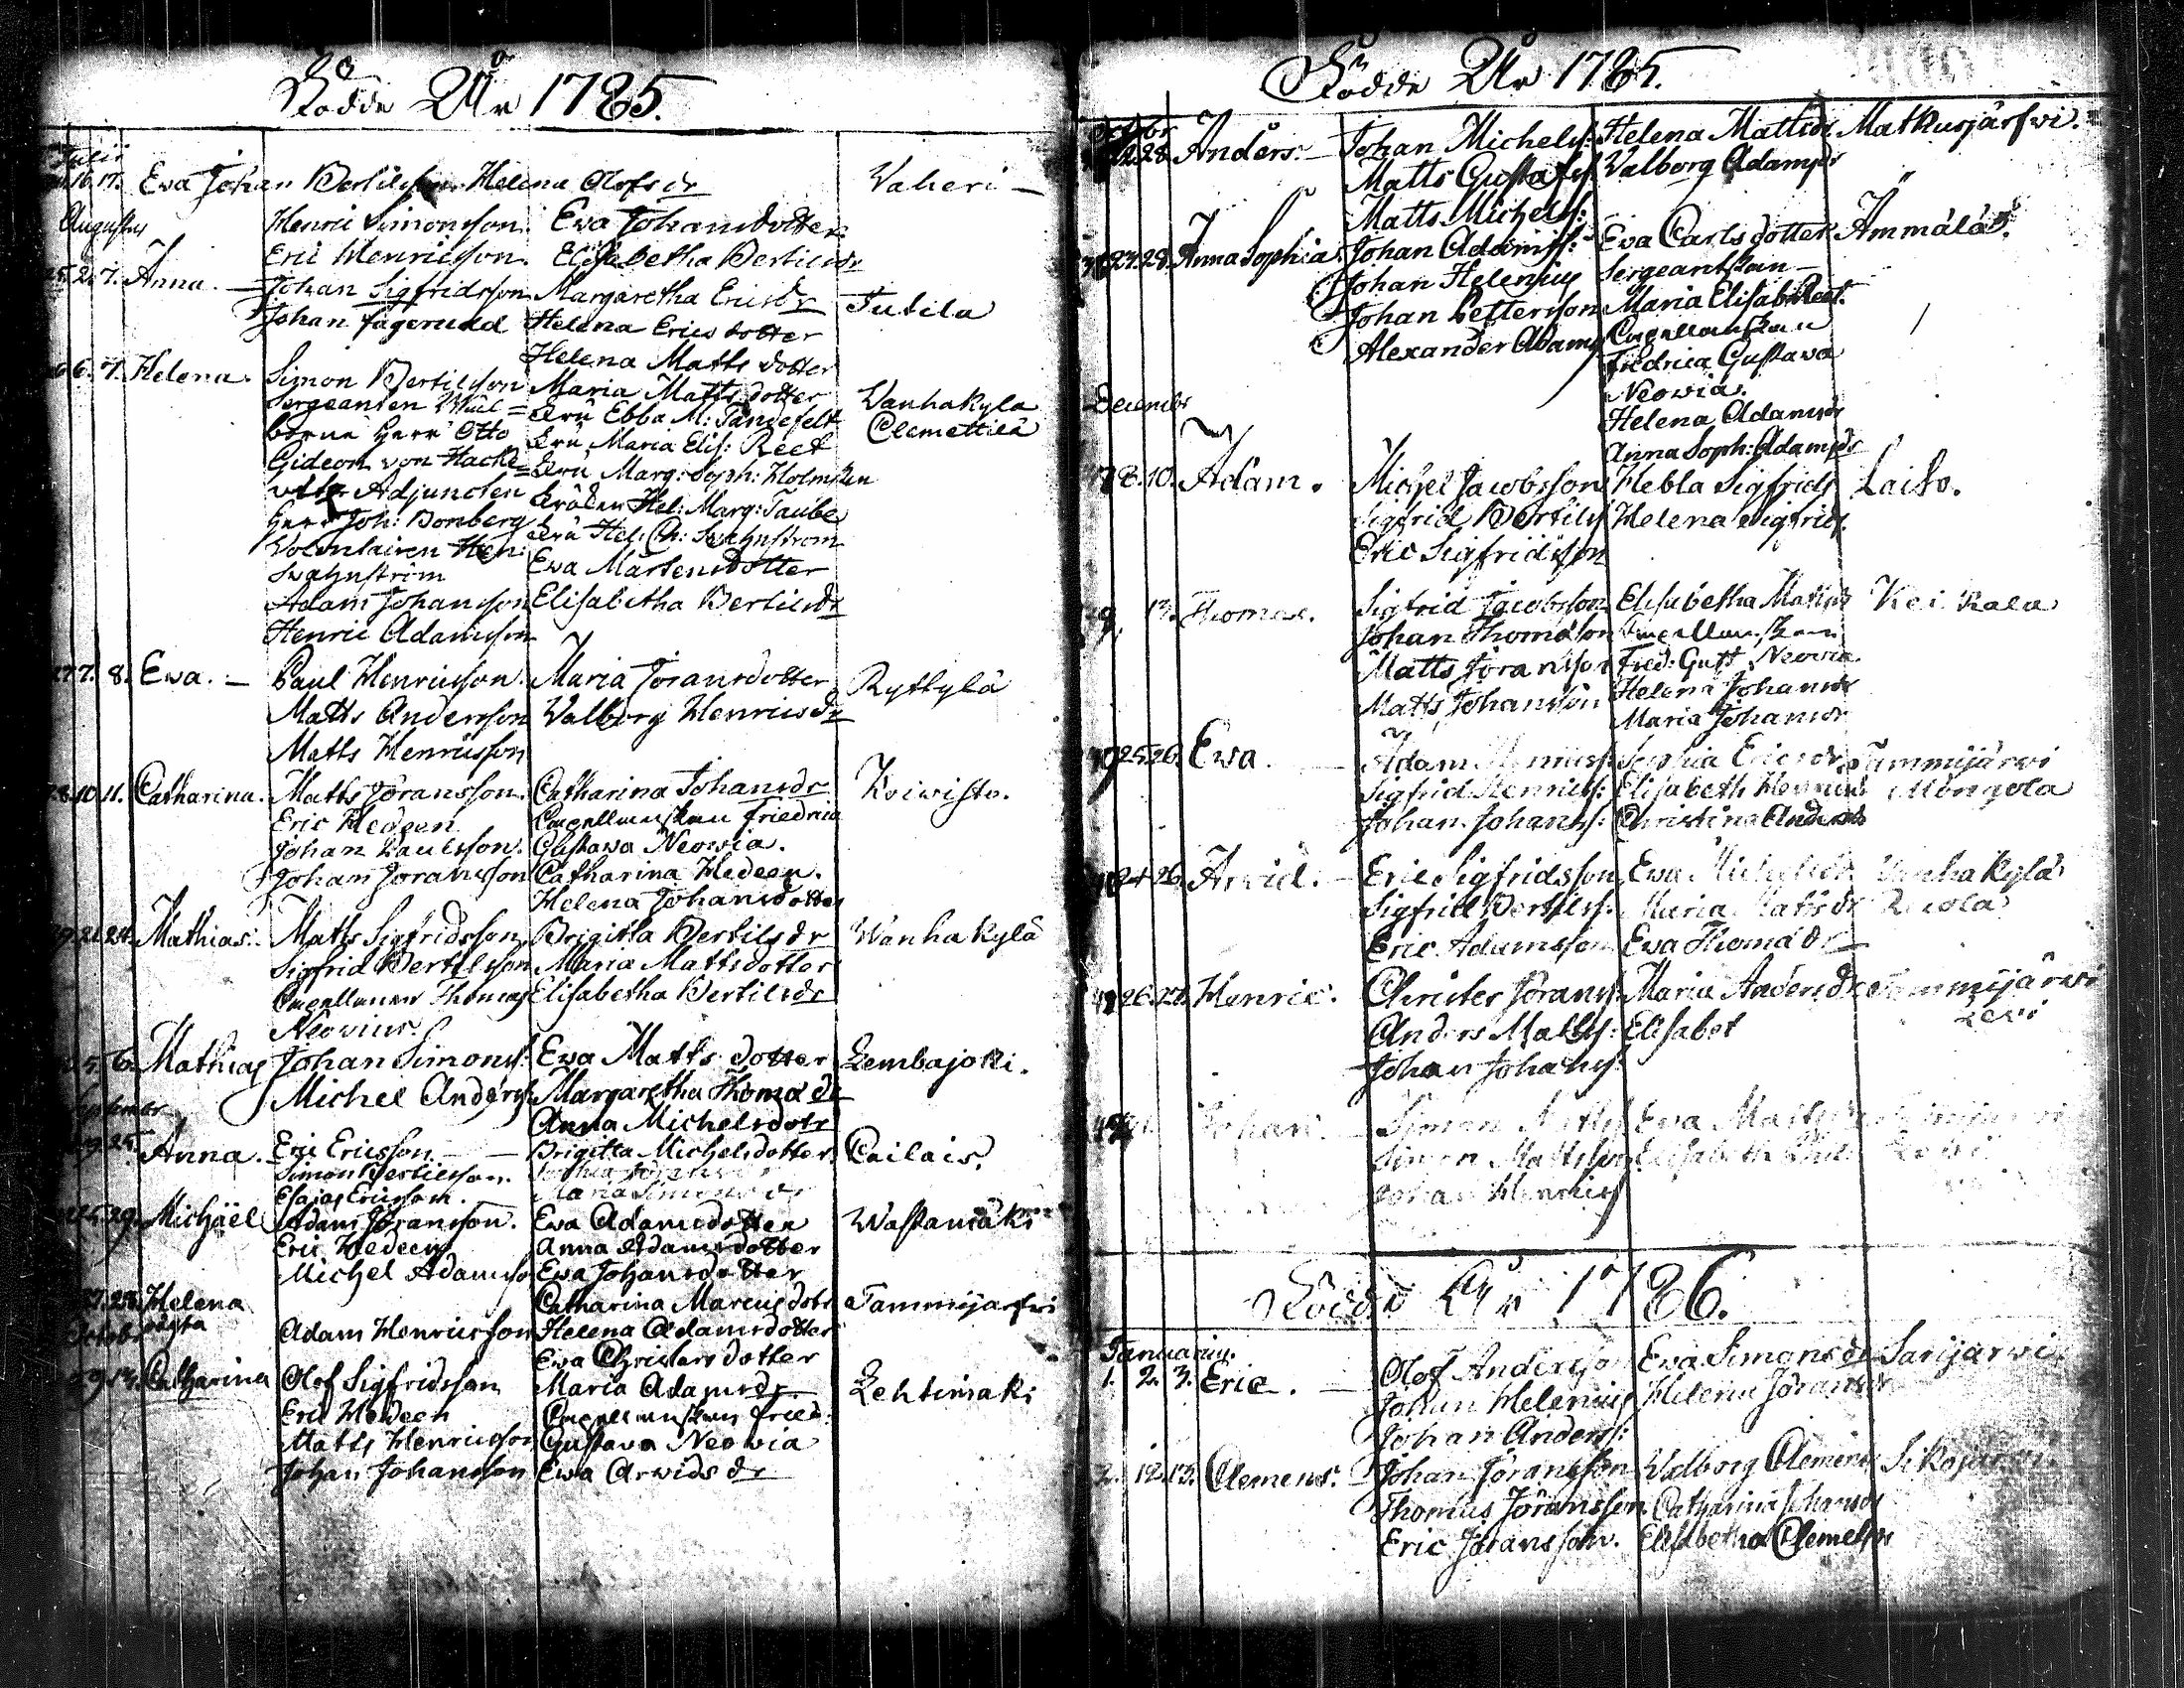 Födde År 1785.
Julii
16. 17. Ewa Johan Bertilsson Helena Olofsdr Waheri
Augusti
Henric Simonsson Ewa Johansdotter
Eric Henricsson. Elisabetha Bertilsdr
25. 2. 7. Anna. Johan Sigfridsson Margaretha Ericsdr Tutila
Johan Fagerudd Helena Erics dotter
Helena Matts dotter
6. 7. Helena. Simon Bertilsson Maria Matts dotter Wanhakyla
Sergeanten Wäl= Frü Ebba M: Tandefelt Clemettilä
borne Herr Otto Frü Maria Elis: Reet
Gideon von Hacke= Fru Marg: Soph: Holmsten
Adjuncten Fröken Hel: Marg: Taube
Herr Joh: Bonberg Frü Hel: Ch: Swahnström
Volontairen Hen: Ewa Mårtensdotter
Swahnström
Adam Johansson Elisabetha Bertilsdr
Henric Adamsson
27. 7. 8. Ewa. Paul Henricsson. Maria Jöransdotter Ryttylä
Matts Andersson Walborg Henricsdr
Matts Henricsson
28. 10. 11. Catharina. Matts Jöransson. Catharina Johansdr Koiwisto.
Eric Hedeen Capellanskan Friedrica
Johan Paulsson. Gustawa Neowia.
Johan Jöransson Catharina Hedeen.
Helena Johansdotter
29. 21. 24. Mathias. Matts Sigfridsson Brigitta Bertilsdr Wanhakylä
Sigfrid Bertilsson Maria Mattsdotter
Capellanen Thomas Elisabetha Bertilsdr
Neovius.
5. 6. Mathias Johan Simonss: Ewa Matts dotter Lembajoki.
Michel Anderss: Margaretha Thomädr
September Anna Michelsdotr
25. Anna. Eric Ericsson Brigitta Michelsdotter Cailais.
Simon Bertilsson.
Esaias Ericsson. Maria Simonsdr
25. 29. Michaël Adam Jöransson. Ewa Adamsdotter Wastamäki
Eric Hedeen Anna Adamsdotter
Michel Adamsson Ewa Johansdotter
27. 28. Helena Catharina Marcusdotr Tammijärfwi
October oägta Adam Henricsson Helena Adamsdotter
Ewa Christersdotter
9. 13. Catharina Olof Sigfridsson Maria Adamsdr Lehtimäki
Eric Hedeen Capellanskan Fried:
Matts Henricsson Gustava Neowia
Johan Johansson Ewa Arvidsdr
Födde År 1785.
22. 28. Anders. Johan Michelss: Helena Mattsdr Matkusjärfwi.
Matts Gustafss Walborg Adamsdr
Matts Michelss:
27. 28. Anna Sophia. Johan Adamss: Ewa Carlsdotter Ämmälä
Johan Helenius Sergeantskan
Johan Pettersson Maria Elisab: Reet.
Alexander Adamss Capellanskan
Fredrica Gustava
Decembr Neowia.
Helena Adamsdr
Anna Soph: Adamsdr
8. 10. Adam. Michel Jacobsson Hebla Sigfridsdr Laito.
Sigfrid Bertilss Helena Sigfridsdr
Eric Sigfridsson
9. 13. Thomas. Sigfrid Jacobsson Elisabetha Mattsdr Keikala
Johan Thomasson Capellanskan
Matts Jöransson Fred: Gust Neowia
Matts Johansson Helena Johansdr
Maria Johansdr
25. 26. Ewa. Adam Henricss: Sophia Ericsdr Tammijärwi
Sigfrid Henricss: Elisabeth Henricsdr Mongola
Johan Johanss: Christina Andersdr
24. 26. Arvid. Eric Sigfridsson Ewa Michelsdr Wanhakylä
Sigfrid Bertilss: Maria Mattsdr
Eric Adamsson Ewa Thomädr
26. 27. Henric. Christer Jöranss: Maria Andersdr Tammijärwi
Anders Matss: Elisabet Lewi
Johan Johanss:
Johan. Simon Matss Ewa Mattsdr
Simon Mattsson Elisabeth Lewi
Johan Henricss
Födde År 1786.
Januarius.
1. 2. 3. Eric. Olof Andersson Ewa Simonsdr Sarijärwi
Johan Helenius Helena Jöransdr
Johan Anderss:
2. 12. 13. Clemens. Johan Jöransson Walborg Clemensdr Sikojärwi.
Thomas Jöransson. Catharina Johansdr
Eric Jöransson. Elisabetha Clemetsdr